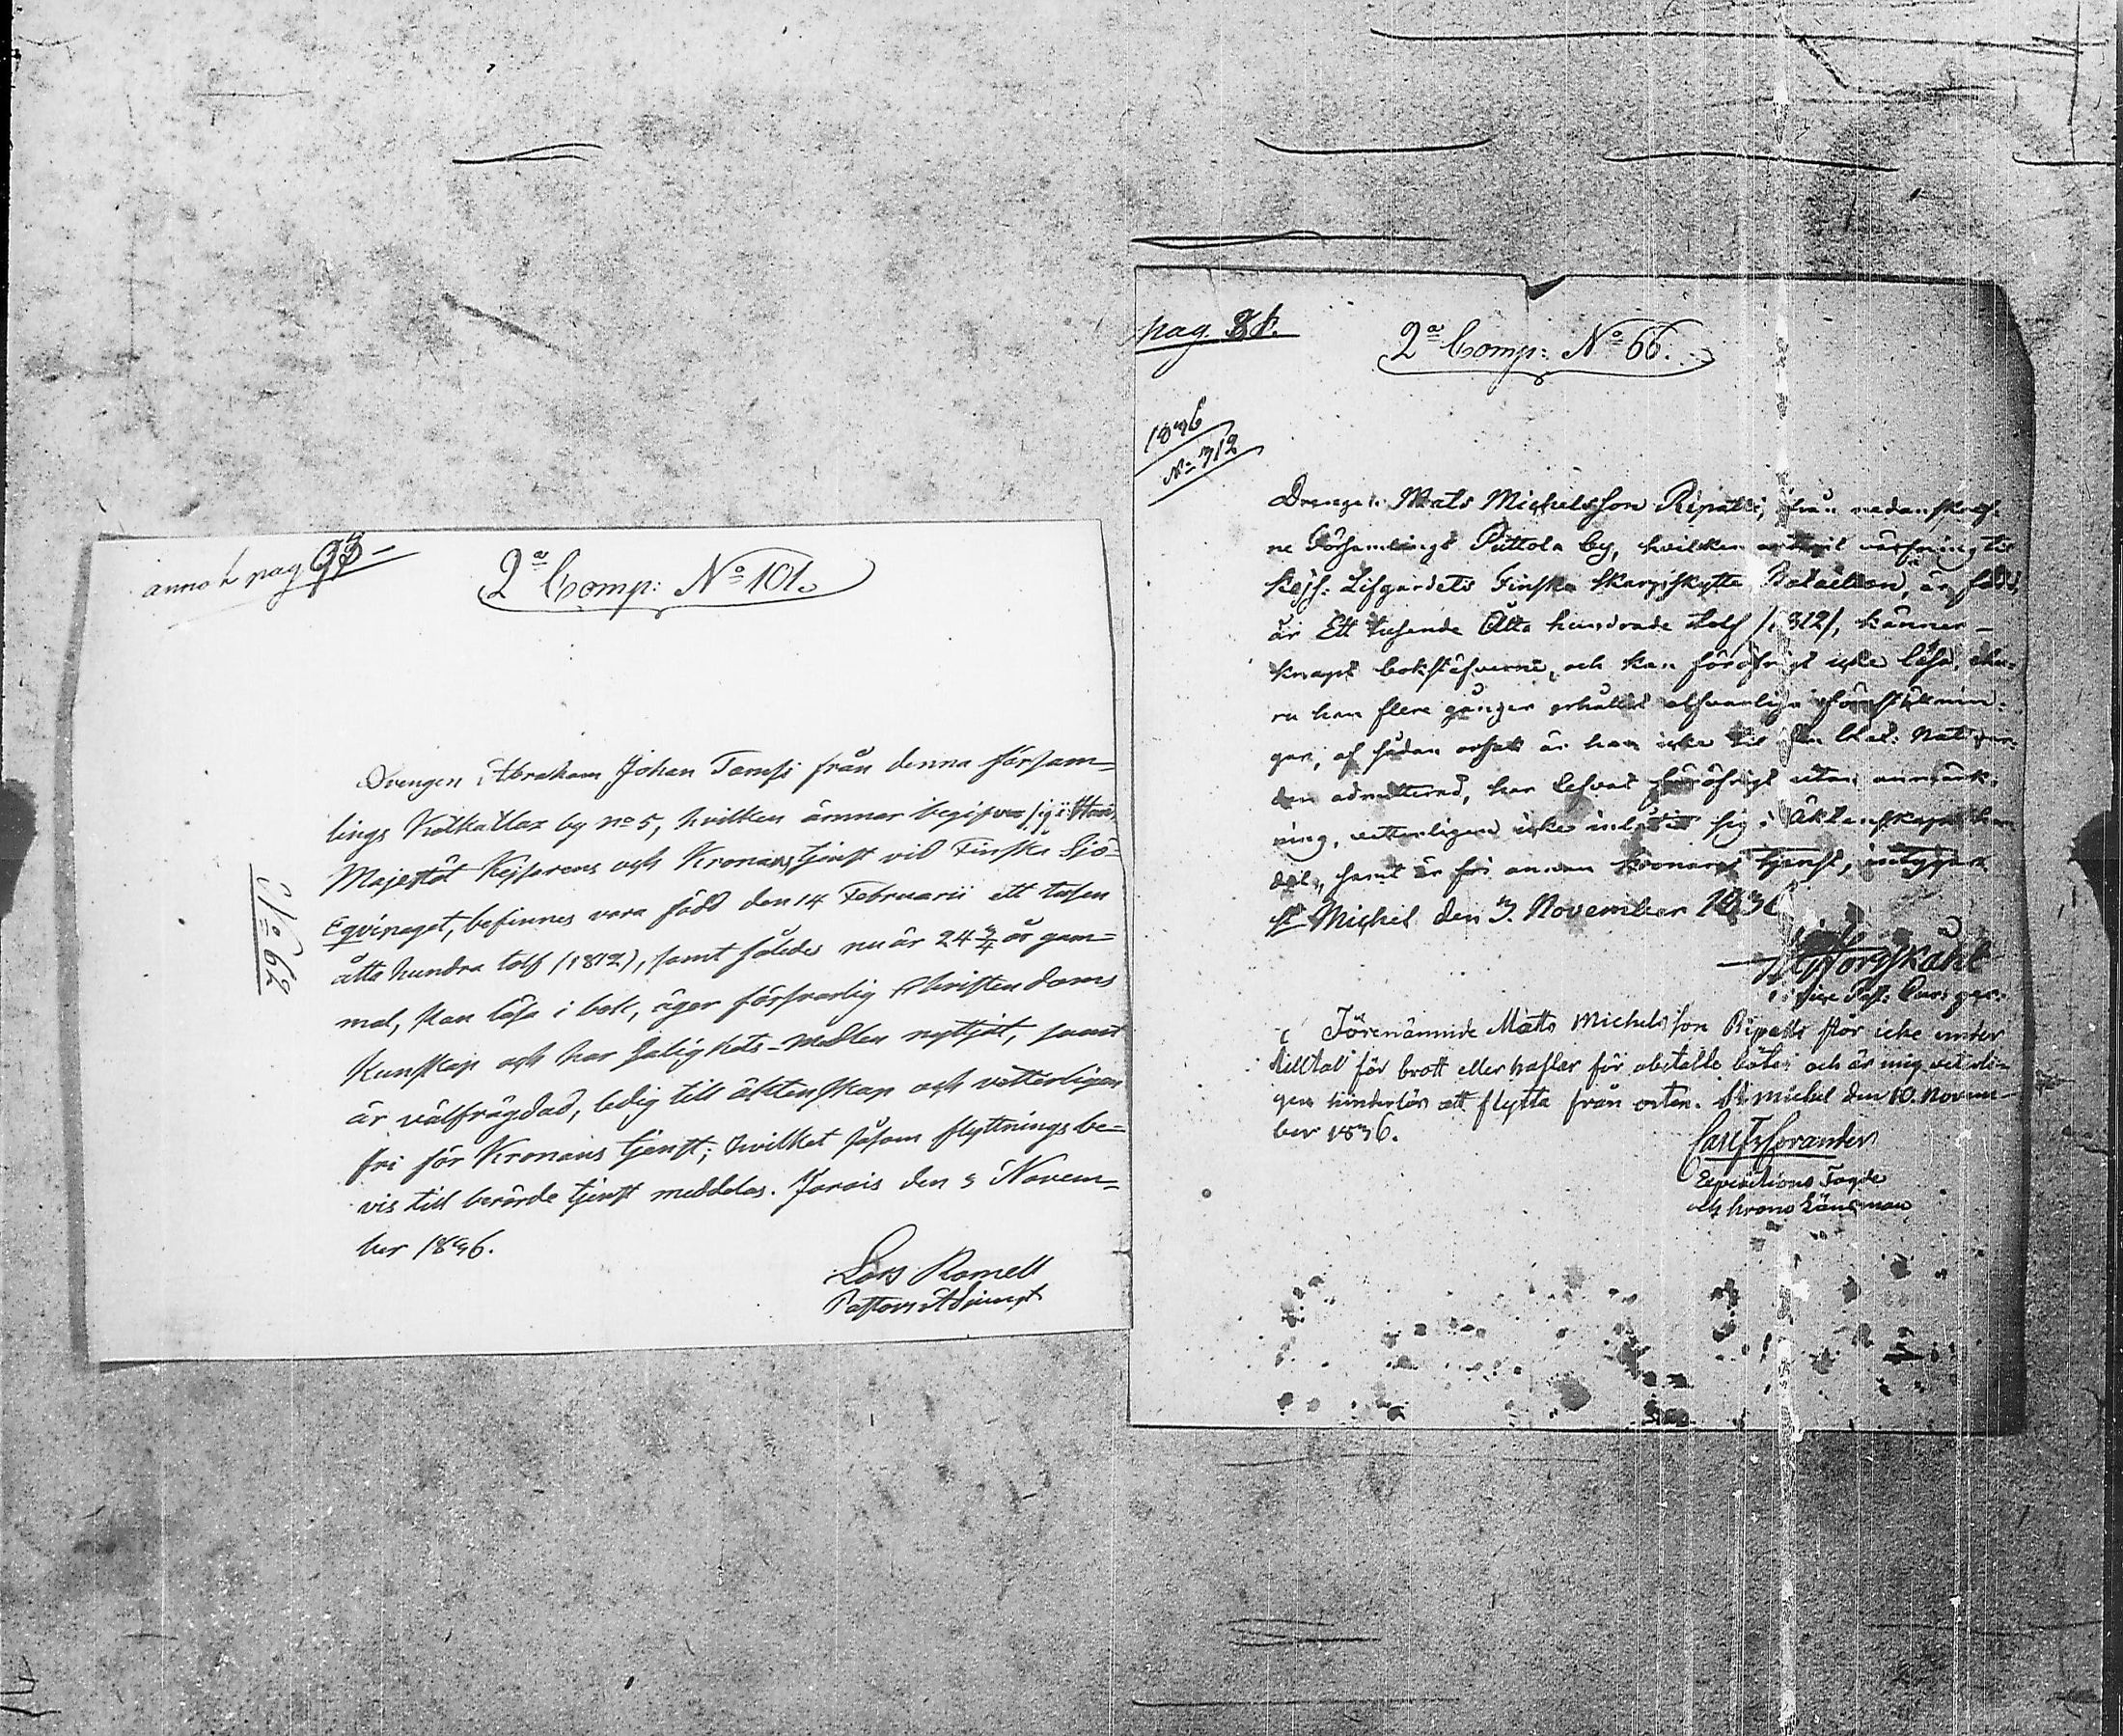 annot pag 93
2a Comp: No 101.
No 62
Drengen Abraham Johan Tamsi från denna försam=
lings Kälkällax by no 5, hvilken ämnar begifva sig i Hans
Majestät Kejsarens och Kronans tjenst vid Finska Sjö=
Eqvipaget, befinnes vara född den 14 Februarii ett tusen
åtta hundra tolf (1812), samt således nu är 24 3/4 år gam=
mal, kan läsa i bok, äger försvarlig Christendoms
Kunskap och har Salighets-medlen nyttjat, samt
är välfrägdad, ledig till äktenskap och vetterligen
fri för Kronans tjenst; hvilket såsom flyttningsbe=
vis till berörde tjenst meddelas. Jorois den 3 Novem=
ber 1836.
Lars Romell
Pastors Adjunct
pag. 88.
2a Comp: No 66.
1836
No 312
Drengen Mats Michelsson Ripatti, från nedanskref-
ne Församlings Pättola by, hvilken värfning til
Kejs. Lifgardets Finska Skarpskytte Bataillon, är född
år Ett tusende Åtta hundrade tolf /1812/, känner
knapt bokstäfverne, och kan föröfrigt icke läsa, ehu-
ru han flere gånger erhållit alfvarliga föreställnin-
gar, af sådan orsak är han icke til
den admitterad, har lefvat föröfrigt utan anmärk-
ning, vetterligen icke inlåtit sig i Äktenskaps han-
del, samt är fri annan Kronans tjenst, intygar
St Michel den 3. November 1836
Forsskåhl
Vice Past:
Förenämnde Matts Michelsson Ripatti står icke under
tilltal för brott eller häftar för obetalte böter och är mig veterli-
gen hinderlös att flytta från orten. St Michel den 10. Novem-
ber 1836.
Expeditions Fogde
och Krono Länsman